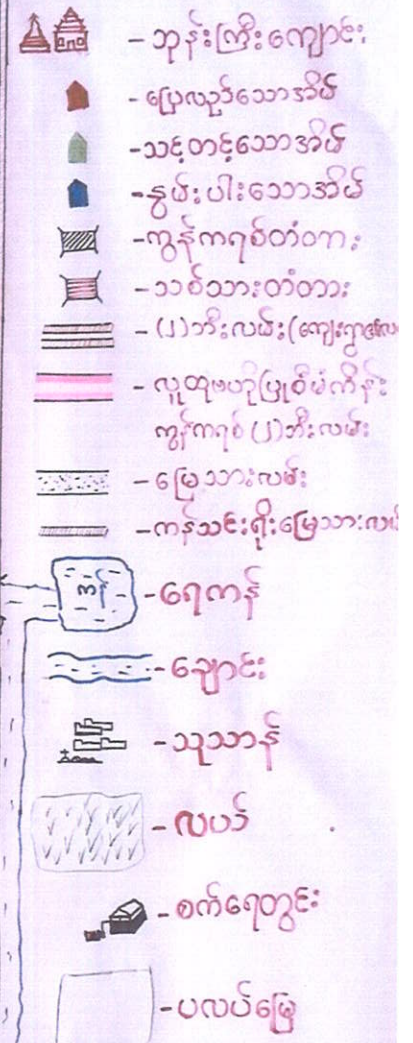 - ဘုန်းကြီးကျောင်း
- ပြေလည်သောအိမ်
- သင့်တင့်သောအိမ်
- နွမ်းပါးသောအိမ်
- ကွန်ကရစ်တံတား
- သစ်သားတံတား
- (၂)ဘီးလမ်း(ကျေးရွာ
- လူထုဗဟိုပြုစီမံကိန်း
ကွန်ကရစ်(၂)ဘီးလမ်း
- မြေသားလမ်း
- ကန်သင်းရိုးမြေသားလမ်း
ကန်
- ရေကန်
- ချောင်း
- သုသာန်
- လယ်
- စက်ရေတွင်း
- ပလပ်မြေ